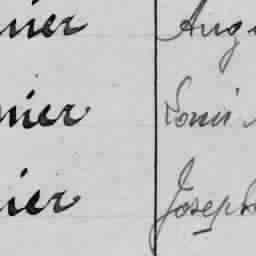 nier Aug
nier Louis
ier Joseph